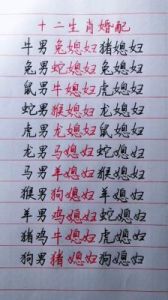 十二生肖婚配
牛男兔媳妇猪媳妇
兔男蛇媳妇兔媳妇
鼠男牛媳妇虎媳妇
蛇男猴媳妇龙媳妇
虎男龙媳妇兔媳妇
龙男马媳妇蛇媳妇
马男羊媳妇猴媳妇
猴男狗媳妇羊媳妇
羊男鸡媳妇蛇媳妇
猪鸡牛媳妇虎媳妇
狗男猪媳妇狗媳妇